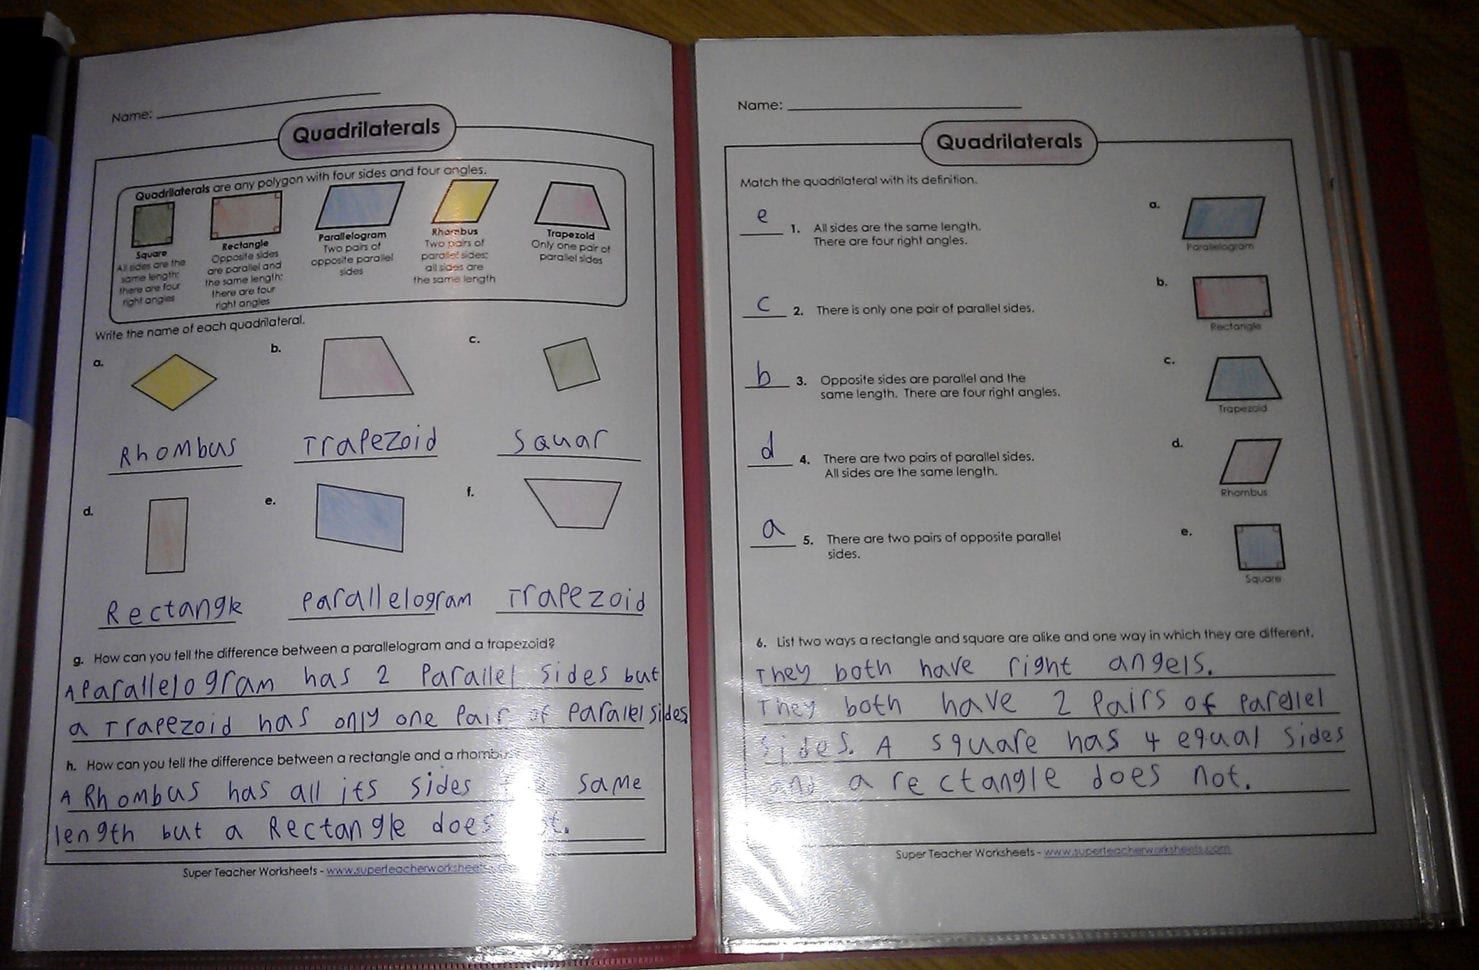 Name:
Quadrilaterals
Quadrilaterals are any polygon with four sides and four angles.
Square
All sides are the
same length;
there are four
right angles
Rectangle
Opposite sides
are parallel and
the same length;
there are four
right angles
Parallelogram
Two pairs of
opposite parallel
sides
Rhombus
Two pairs of
parallel sides;
all sides are
the same length
Trapezoid
Only one pair of
parallel sides
Write the name of each quadrilateral.
a.
b.
c.
Rhombus
Trapezoid
Squar
d.
e.
f.
Rectangle
Parallelogram
Trapezoid
g. How can you tell the difference between a parallelogram and a trapezoid?
A Parallelogram has 2 Parallel sides but
a Trapezoid has only one Pair of Paralel sides
h. How can you tell the difference between a rectangle and a rhombus
A Rhombus has all its sides same
length but a Rectangle does
Super Teacher Worksheets - www.superteacherworksheets
Name:
Quadrilaterals
Match the quadrilateral with its definition.
e 1. All sides are the same length.
There are four right angles.
a.
Parallelogram
c 2. There is only one pair of parallel sides.
b.
Rectangle
b 3. Opposite sides are parallel and the
same length. There are four right angles.
c.
Trapezoid
d 4. There are two pairs of parallel sides.
All sides are the same length.
d.
Rhombus
a 5. There are two pairs of opposite parallel
sides.
e.
Square
6. List two ways a rectangle and square are alike and one way in which they are different.
They both have right angels.
They both have 2 Pairs of Parellel
sides. A square has 4 equal sides
and a rectangle does not.
Super Teacher Worksheets - www.superteacherworksheets.com